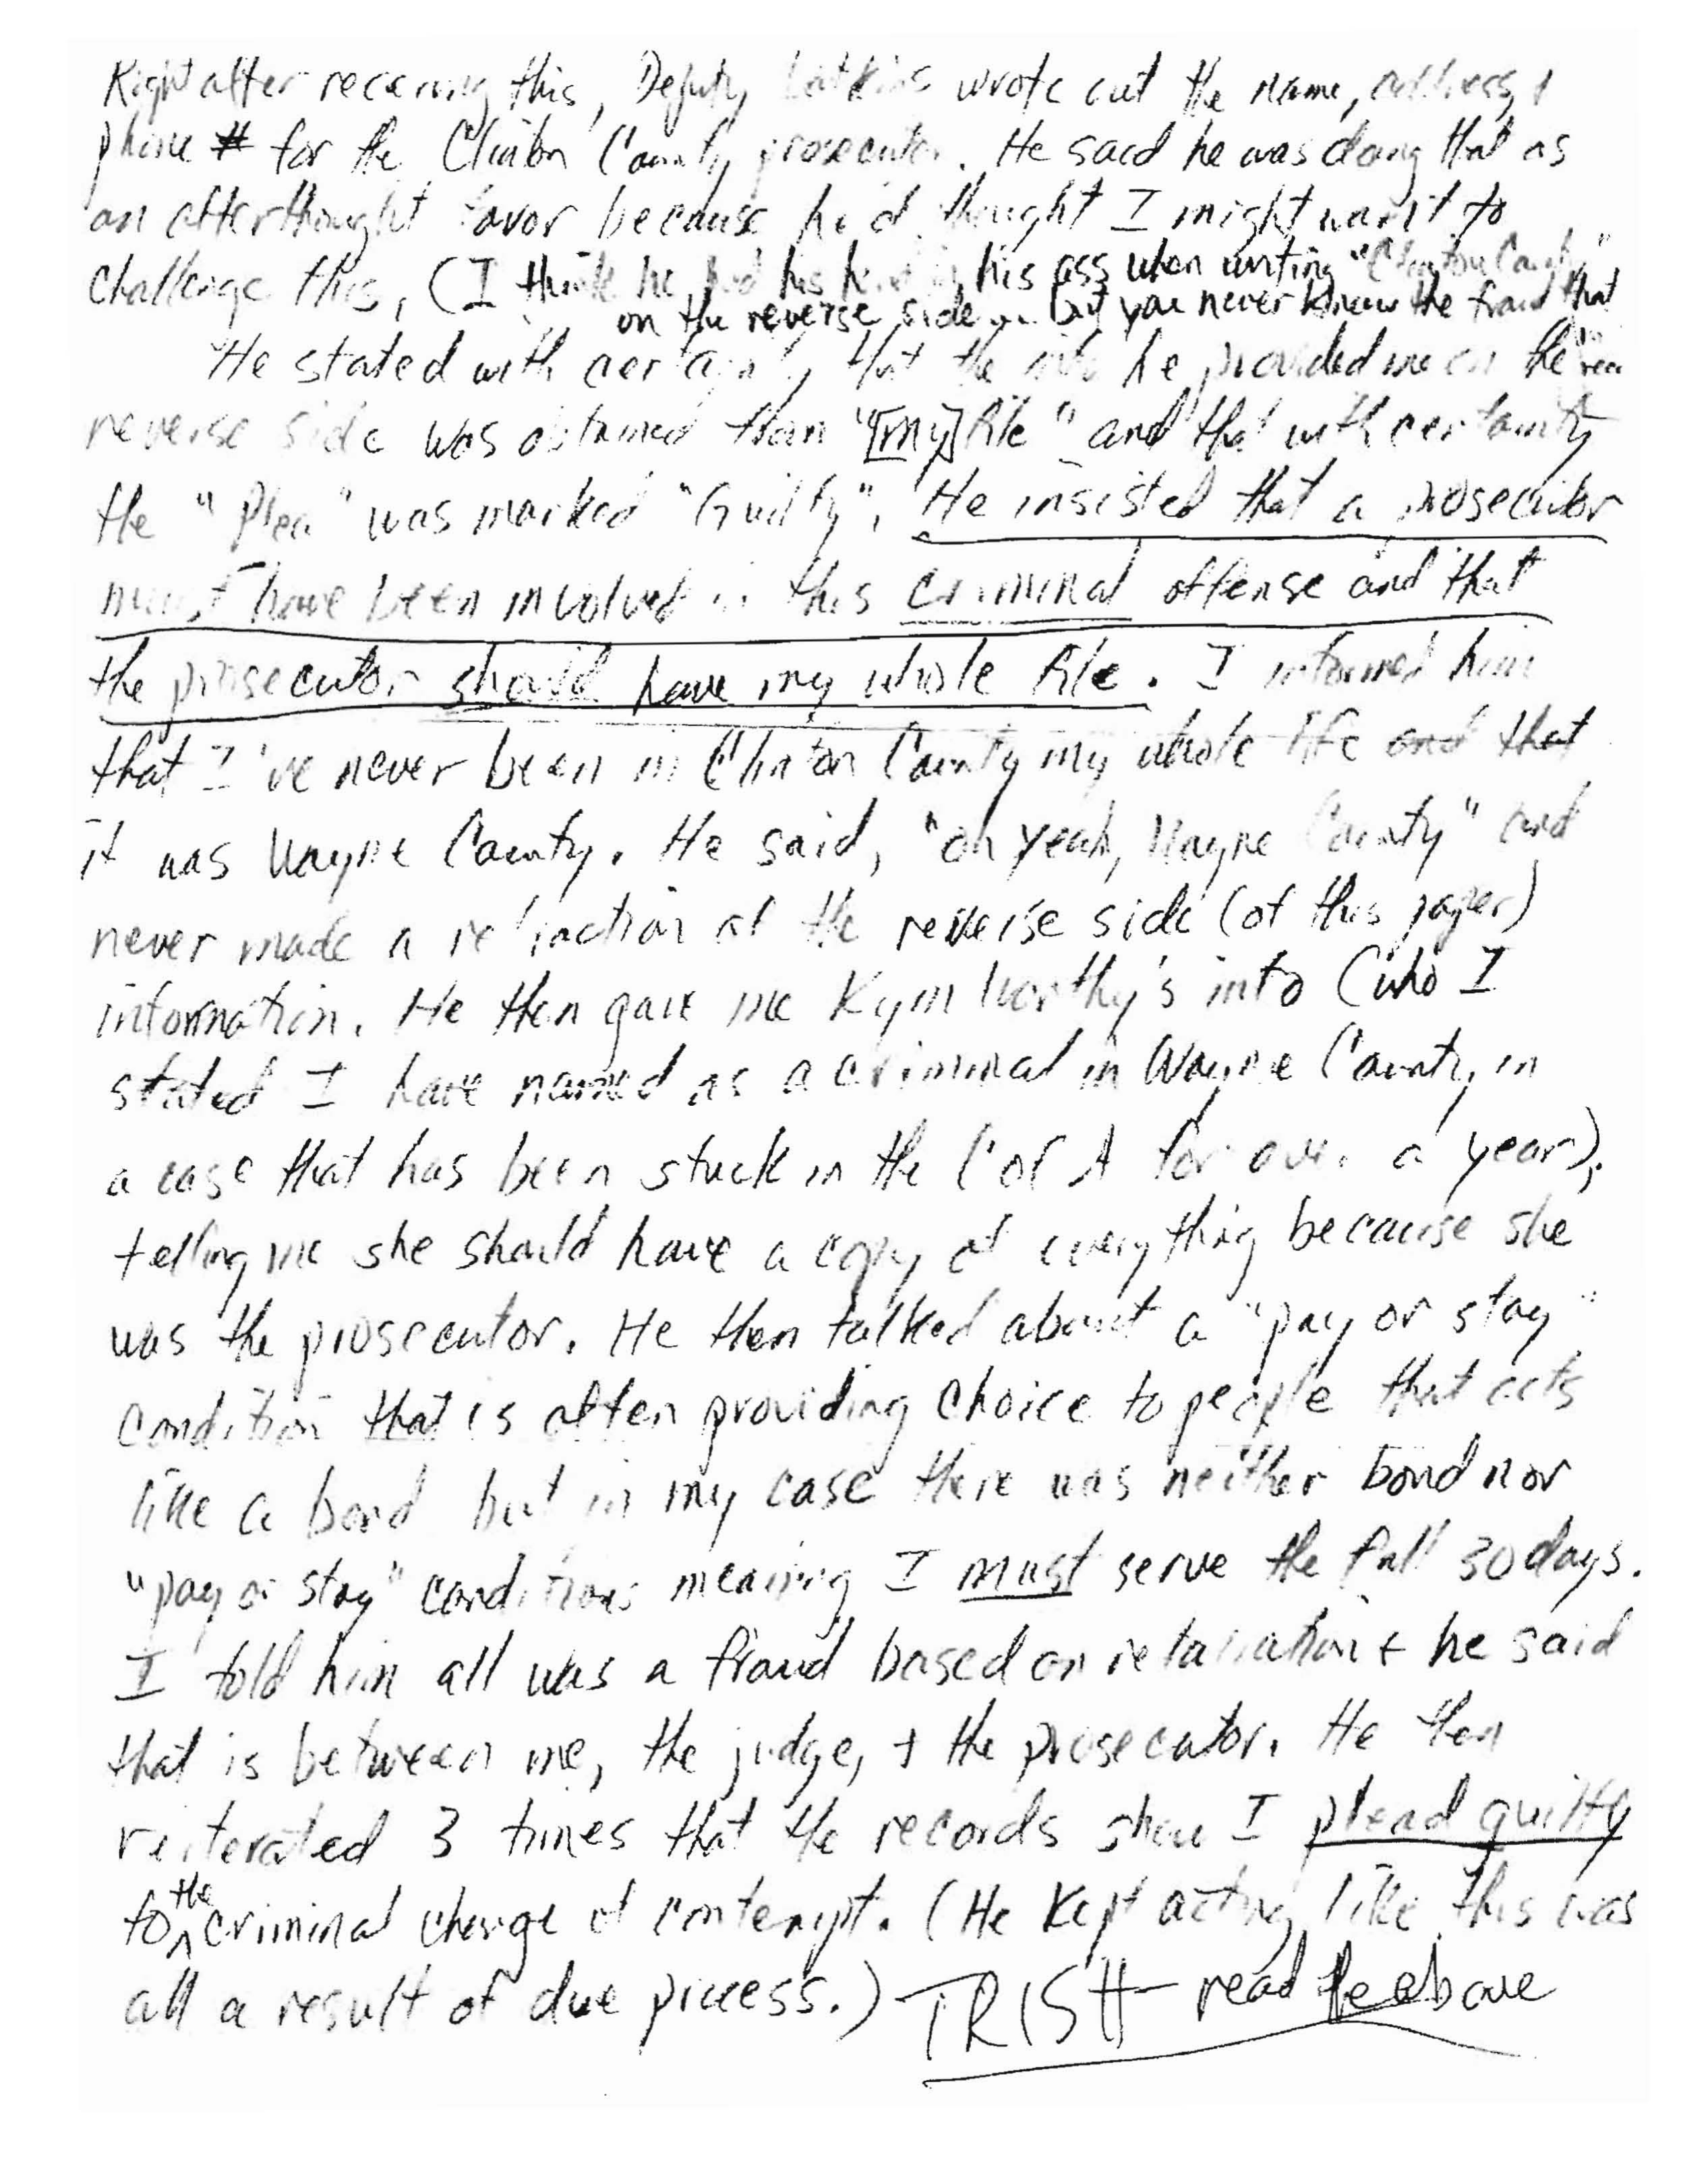 Right after receiving this, Deputy wrote out the name, address, &
phone # for the Clinton County prosecutor. He said he was doing that as
an afterthought favor because he'd thought I might want to
challenge this, (I think he had his head in his ass when writing "Clinton County"
on the reverse side ... but you never know the fraud that
He stated with certainty that the info he provided me on the
reverse side was obtained from "[my] file" and that with certainty
the "Plea" was marked "Guilty". He insisted that a prosecutor
must have been involved in this criminal offense and that
the prosecutor should have my whole file. I informed him
that I've never been in Clinton County my whole life and that
it was Wayne County. He said, "oh yeah, Wayne County" and
never made a retraction of the reverse side (of this paper)
information. He then gave me Kym Worthy's info (who I
stated I have named as a criminal in Wayne County, in
a case that has been stuck in the C of A for over a year),
telling me she should have a copy of everything because she
was the prosecutor. He then talked about a "pay or stay"
condition that is often providing choice to people that acts
like a bond but in my case there was neither bond nor
"pay or stay" conditions meaning I must serve the full 30 days.
I told him all was a fraud based on retaliation & he said
that is between me, the judge, & the prosecutor. He then
reiterated 3 times that the records show I plead guilty
to the criminal charge of contempt. (He kept acting like this was
all a result of due process.) TRISH - read the above